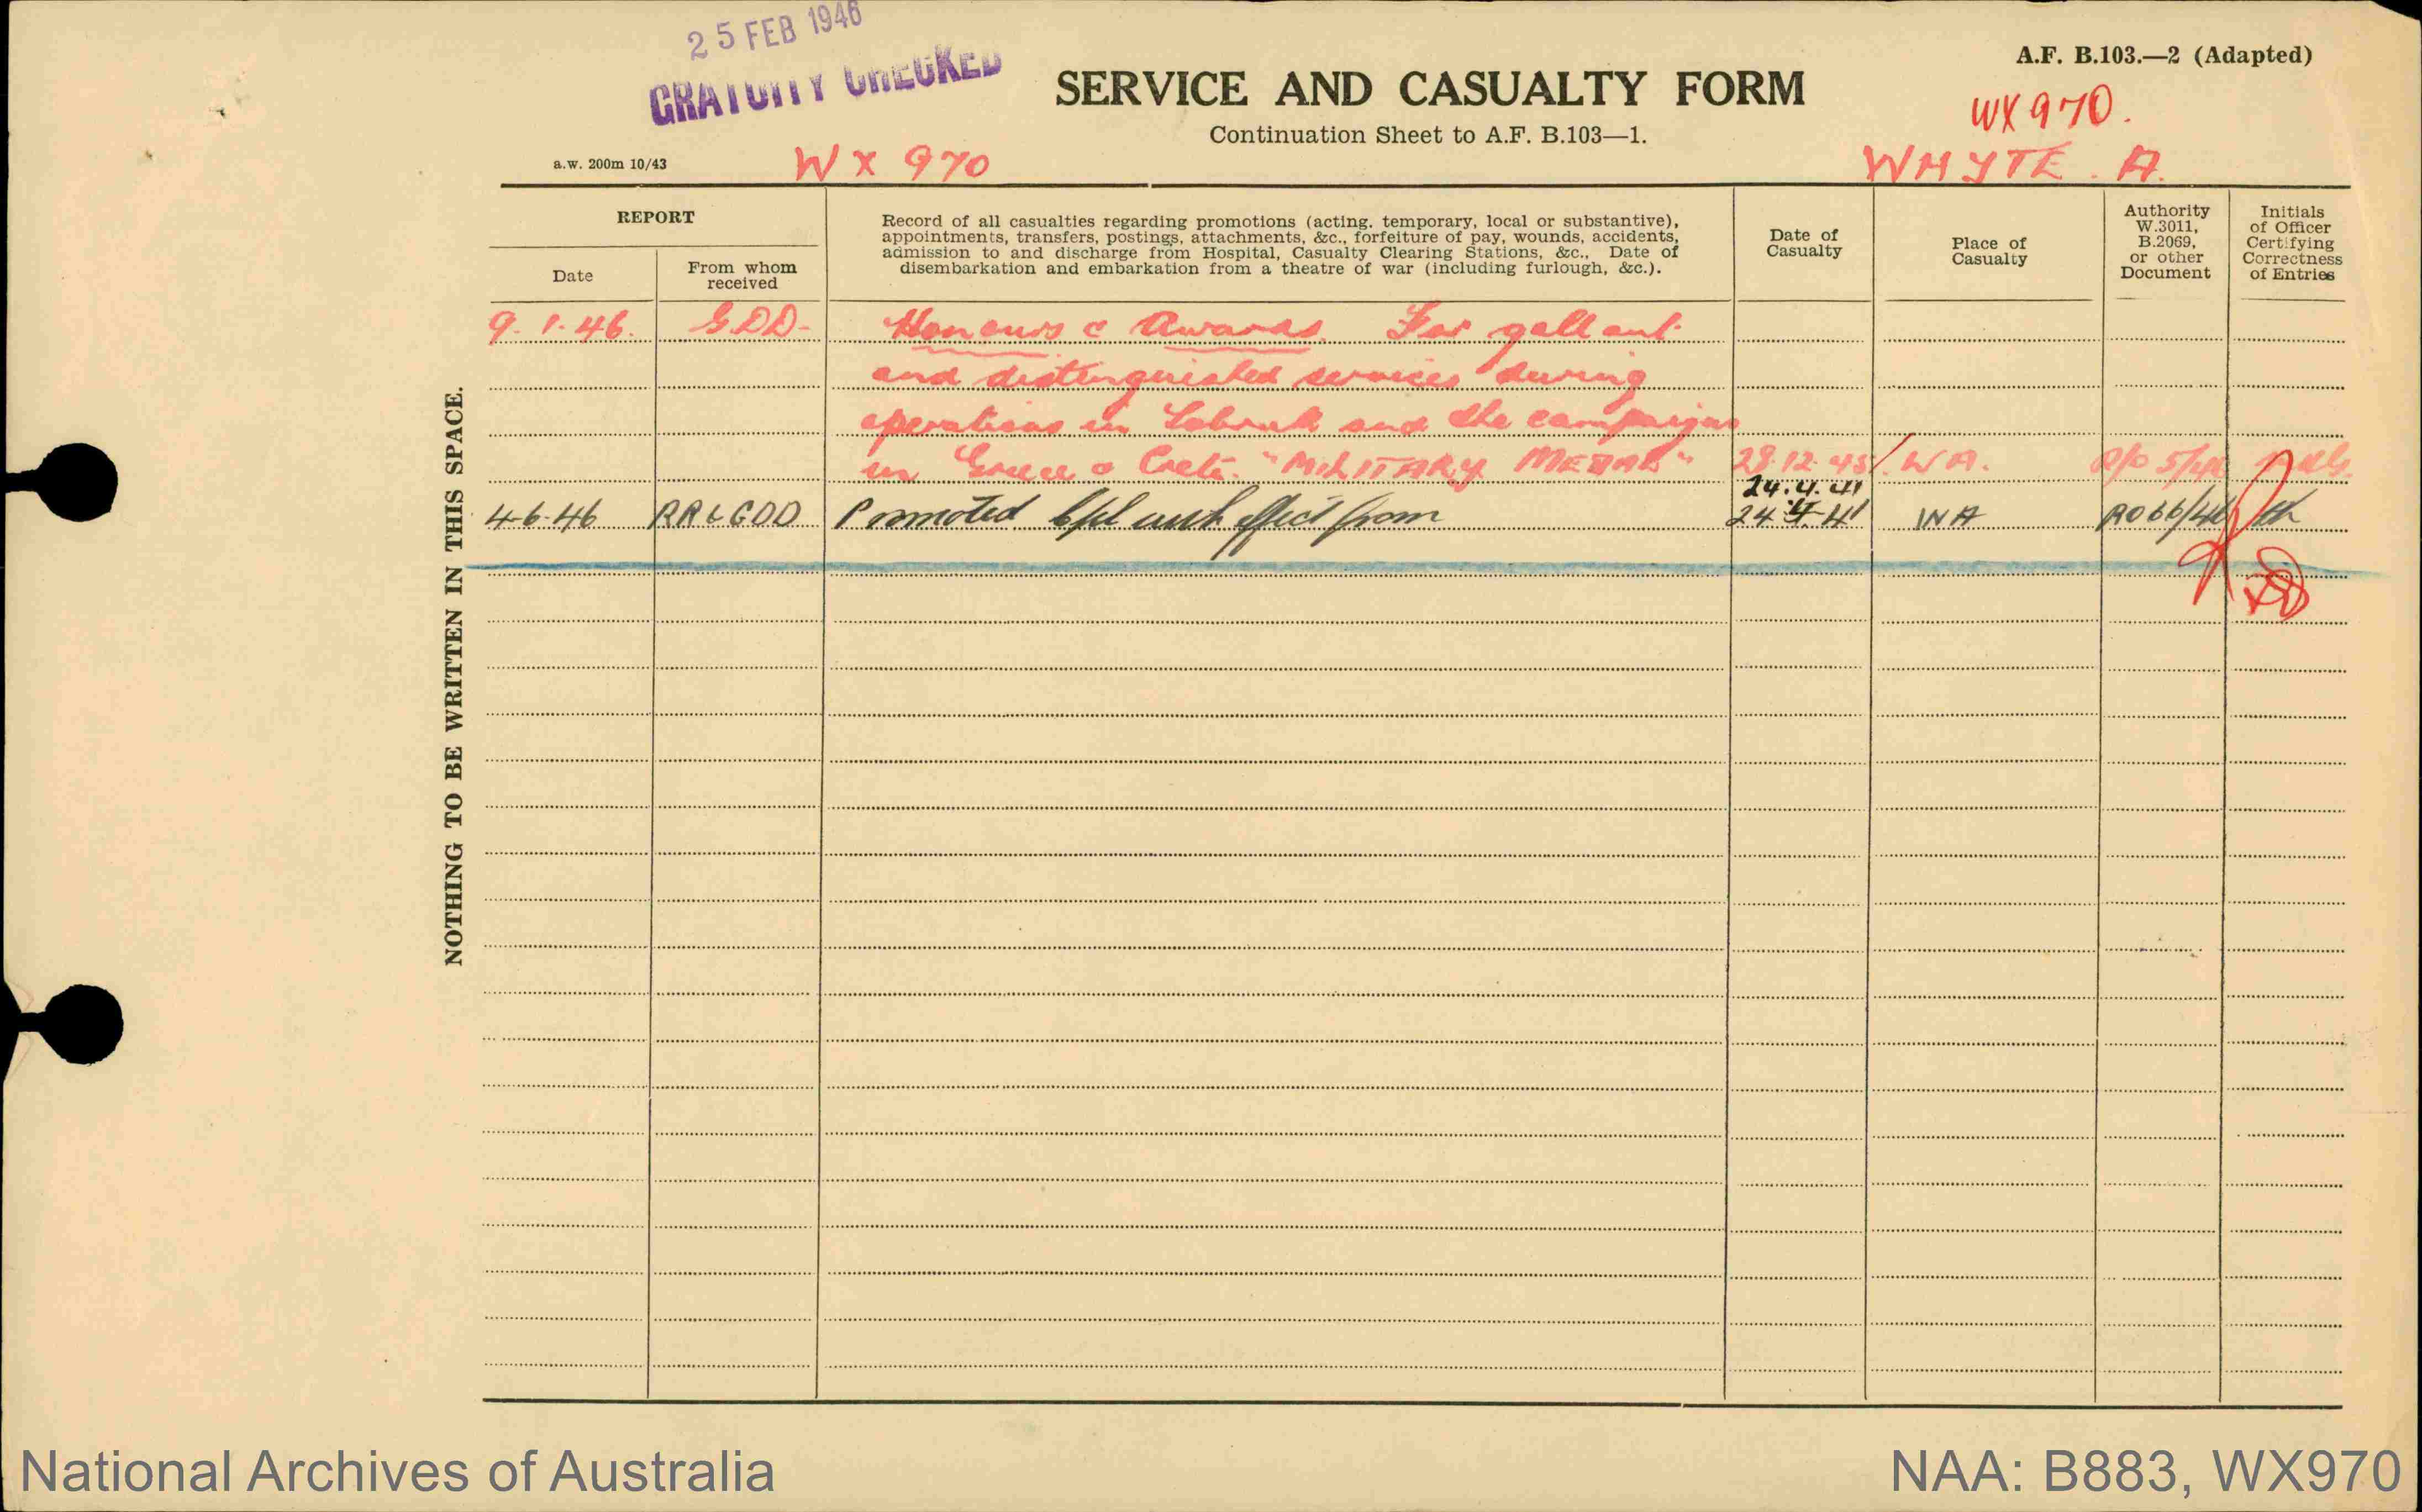 25 FEB 1946
GRATUITY CHECKED
A.F. B.103.—2 (Adapted)
SERVICE AND CASUALTY FORM
WX970.
Continuation Sheet to A.F. B.103—1.
a.w. 200m 10/43
WX 970
WHYTE. A.
REPORT
Date
From whom
received
Record of all casualties regarding promotions (acting, temporary, local or substantive),
appointments, transfers, postings, attachments, &c., forfeiture of pay, wounds, accidents,
admission to and discharge from Hospital, Casualty Clearing Stations, &c., Date of
disembarkation and embarkation from a theatre of war (including furlough, &c.).
Date of
Casualty
Place of
Casualty
Authority
W.3011,
B.2069,
or other
Document
Initials
of Officer
Certifying
Correctness
of Entries
9.1.46. GDD- Honours & Awards. For gallant
and distinguished services during
operations in Tobruk and the campaigns
in Greece & Crete. "MILITARY MEDAL" 28.12.45 WA. R/O 5/46
24.4.41
4-6-46 RR&GDD Promoted Cpl with effect from 24 4 41 WA RO66/46
NOTHING TO BE WRITTEN IN THIS SPACE.
National Archives of Australia
NAA: B883, WX970